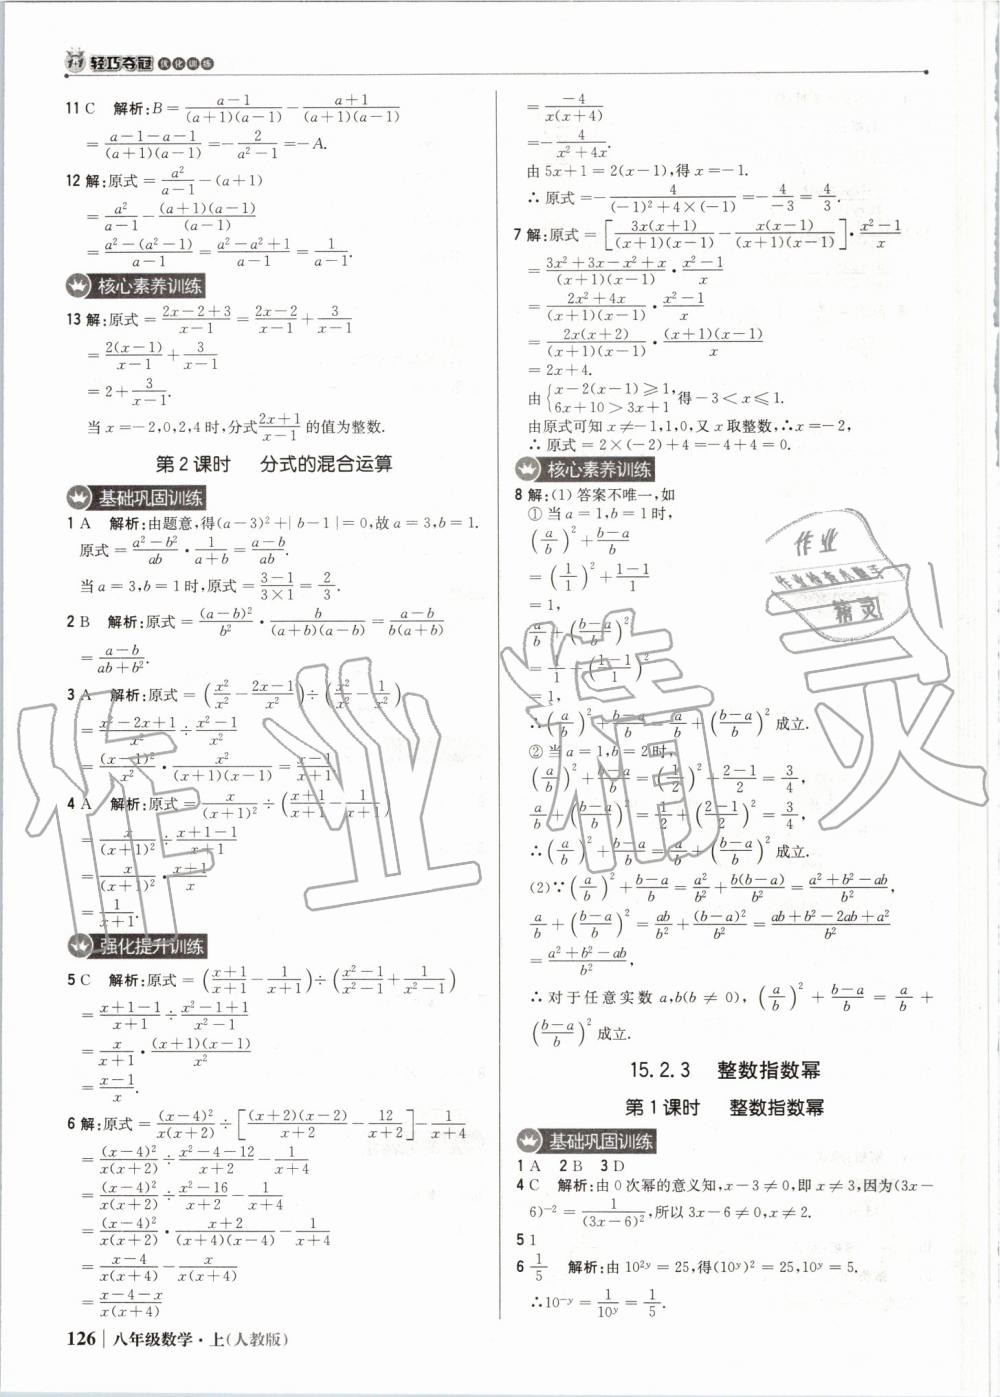 1+1 轻巧夺冠 优化训练
11 C 解析:B=\frac{a-1}{(a+1)(a-1)}-\frac{a+1}{(a+1)(a-1)}
=\frac{a-1-a-1}{(a+1)(a-1)}=-\frac{2}{a^2-1}=-A.
12 解:原式=\frac{a^2}{a-1}-(a+1)
=\frac{a^2}{a-1}-\frac{(a+1)(a-1)}{(a-1)}
=\frac{a^2-(a^2-1)}{a-1}=\frac{a^2-a^2+1}{a-1}=\frac{1}{a-1}.
核心素养训练
13 解:原式=\frac{2x-2+3}{x-1}=\frac{2x-2}{x-1}+\frac{3}{x-1}
=\frac{2(x-1)}{x-1}+\frac{3}{x-1}
=2+\frac{3}{x-1}.
当x=-2,0,2,4时,分式\frac{2x+1}{x-1}的值为整数.
第2课时 分式的混合运算
基础巩固训练
1 A 解析:由题意,得(a-3)^2+|b-1|=0,故a=3,b=1.
原式=\frac{a^2-b^2}{ab}·\frac{1}{a+b}=\frac{a-b}{ab}.
当a=3,b=1时,原式=\frac{3-1}{3×1}=\frac{2}{3}.
2 B 解析:原式=\frac{(a-b)^2}{b^2}·\frac{b}{(a+b)(a-b)}=\frac{a-b}{b(a+b)}
=\frac{a-b}{ab+b^2}.
3 A 解析:原式=(\frac{x^2}{x^2}-\frac{2x-1}{x^2})÷(\frac{x^2}{x^2}-\frac{1}{x^2})
=\frac{x^2-2x+1}{x^2}÷\frac{x^2-1}{x^2}
=\frac{(x-1)^2}{x^2}·\frac{x^2}{(x+1)(x-1)}=\frac{x-1}{x+1}.
4 A 解析:原式=\frac{x}{(x+1)^2}÷(\frac{x+1}{x+1}-\frac{1}{x+1})
=\frac{x}{(x+1)^2}÷\frac{x+1-1}{x+1}
=\frac{x}{(x+1)^2}·\frac{x+1}{x}
=\frac{1}{x+1}.
强化提升训练
5 C 解析:原式=(\frac{x+1}{x+1}-\frac{1}{x+1})÷(\frac{x^2-1}{x^2-1}+\frac{1}{x^2-1})
=\frac{x+1-1}{x+1}÷\frac{x^2-1+1}{x^2-1}
=\frac{x}{x+1}·\frac{(x+1)(x-1)}{x^2}
=\frac{x-1}{x}.
6 解:原式=\frac{(x-4)^2}{x(x+2)}÷[\frac{(x+2)(x-2)}{x+2}-\frac{12}{x+2}]-\frac{1}{x+4}
=\frac{(x-4)^2}{x(x+2)}÷\frac{x^2-4-12}{x+2}-\frac{1}{x+4}
=\frac{(x-4)^2}{x(x+2)}÷\frac{x^2-16}{x+2}-\frac{1}{x+4}
=\frac{(x-4)^2}{x(x+2)}·\frac{x+2}{(x+4)(x-4)}-\frac{1}{x+4}
=\frac{x-4}{x(x+4)}-\frac{x}{x(x+4)}
=\frac{x-4-x}{x(x+4)}
126 八年级数学·上(人教版)
=\frac{-4}{x(x+4)}
=-\frac{4}{x^2+4x}.
由5x+1=2(x-1),得x=-1.
∴原式=-\frac{4}{(-1)^2+4×(-1)}=-\frac{4}{-3}=\frac{4}{3}.
7 解:原式=[\frac{3x(x+1)}{(x+1)(x-1)}-\frac{x(x-1)}{(x+1)(x-1)}]·\frac{x^2-1}{x}
=\frac{3x^2+3x-x^2+x}{(x+1)(x-1)}·\frac{x^2-1}{x}
=\frac{2x^2+4x}{(x+1)(x-1)}·\frac{x^2-1}{x}
=\frac{2x(x+2)}{(x+1)(x-1)}·\frac{(x+1)(x-1)}{x}
=2x+4.
由{x-2(x-1)≥1, 6x+10>3x+1 得-3<x≤1.
由原式可知x≠-1,1,0,又x取整数,∴x=-2,
∴原式=2×(-2)+4=-4+4=0.
核心素养训练
8 解:(1)答案不唯一,如
①当a=1,b=1时,
(\frac{a}{b})^2+\frac{b-a}{b}
=(\frac{1}{1})^2+\frac{1-1}{1}
=1,
\frac{a}{b}+(\frac{b-a}{b})^2
=\frac{1}{1}+(\frac{1-1}{1})^2
=1,
∴(\frac{a}{b})^2+\frac{b-a}{b}=\frac{a}{b}+(\frac{b-a}{b})^2成立.
②当a=1,b=2时,
(\frac{a}{b})^2+\frac{b-a}{b}=(\frac{1}{2})^2+\frac{2-1}{2}=\frac{3}{4},
\frac{a}{b}+(\frac{b-a}{b})^2=\frac{1}{2}+(\frac{2-1}{2})^2=\frac{3}{4},
∴(\frac{a}{b})^2+\frac{b-a}{b}=\frac{a}{b}+(\frac{b-a}{b})^2成立.
(2)∵(\frac{a}{b})^2+\frac{b-a}{b}=\frac{a^2}{b^2}+\frac{b(b-a)}{b^2}=\frac{a^2+b^2-ab}{b^2},
\frac{a}{b}+(\frac{b-a}{b})^2=\frac{ab}{b^2}+\frac{(b-a)^2}{b^2}=\frac{ab+b^2-2ab+a^2}{b^2}
=\frac{a^2+b^2-ab}{b^2},
∴对于任意实数a,b(b≠0),(\frac{a}{b})^2+\frac{b-a}{b}=\frac{a}{b}+
(\frac{b-a}{b})^2成立.
15.2.3 整数指数幂
第1课时 整数指数幂
基础巩固训练
1 A 2 B 3 D
4 C 解析:由0次幂的意义知,x-3≠0,即x≠3,因为(3x-
6)^{-2}=\frac{1}{(3x-6)^2},所以3x-6≠0,x≠2.
5 1
6 \frac{1}{5} 解析:由10^{2y}=25,得(10^y)^2=25,10^y=5.
∴10^{-y}=\frac{1}{10^y}=\frac{1}{5}.
作业精灵
作业
作业检查小助手
精灵